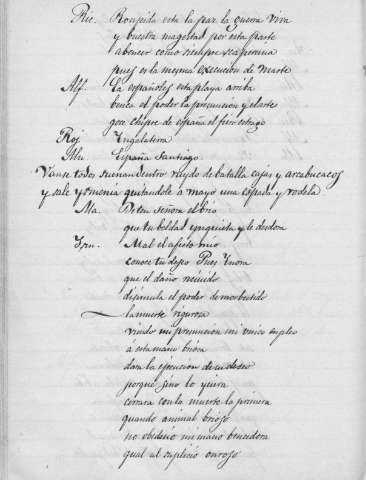 Ric. Rompida esta la paz la guerra viva
y buestra magestad por esta parte
abencer como siempre se aperciua
pues es la mesma execucion de Marte
Alf. La españoles esta playa arriba
benca el poder la presuncion y el arte
goce chipre de españa el fiero estrago
Roj. Yngalaterra
Alm. España Santiago
Vanse todos suenan dentro ruydo de batalla cajas y arcabucaços
y sale ysmenia quitandole a mayo una espada y rodela
Ma. Deten señora el brio
que tu beldad enquieta y le desdora
Ysm. Mal el afecto mio
conoce tu deseo Pues
que el daño
disimula el poder de
la muerte rigurosa
viendo mi presuncion mi unico empleo
á esta mano briosa
dara la execucion de su deseo
porque sino lo yciera
cortara con la muerte la primera
quando animal brioso
no obedecio mi mano bencedora
qual al suplicio